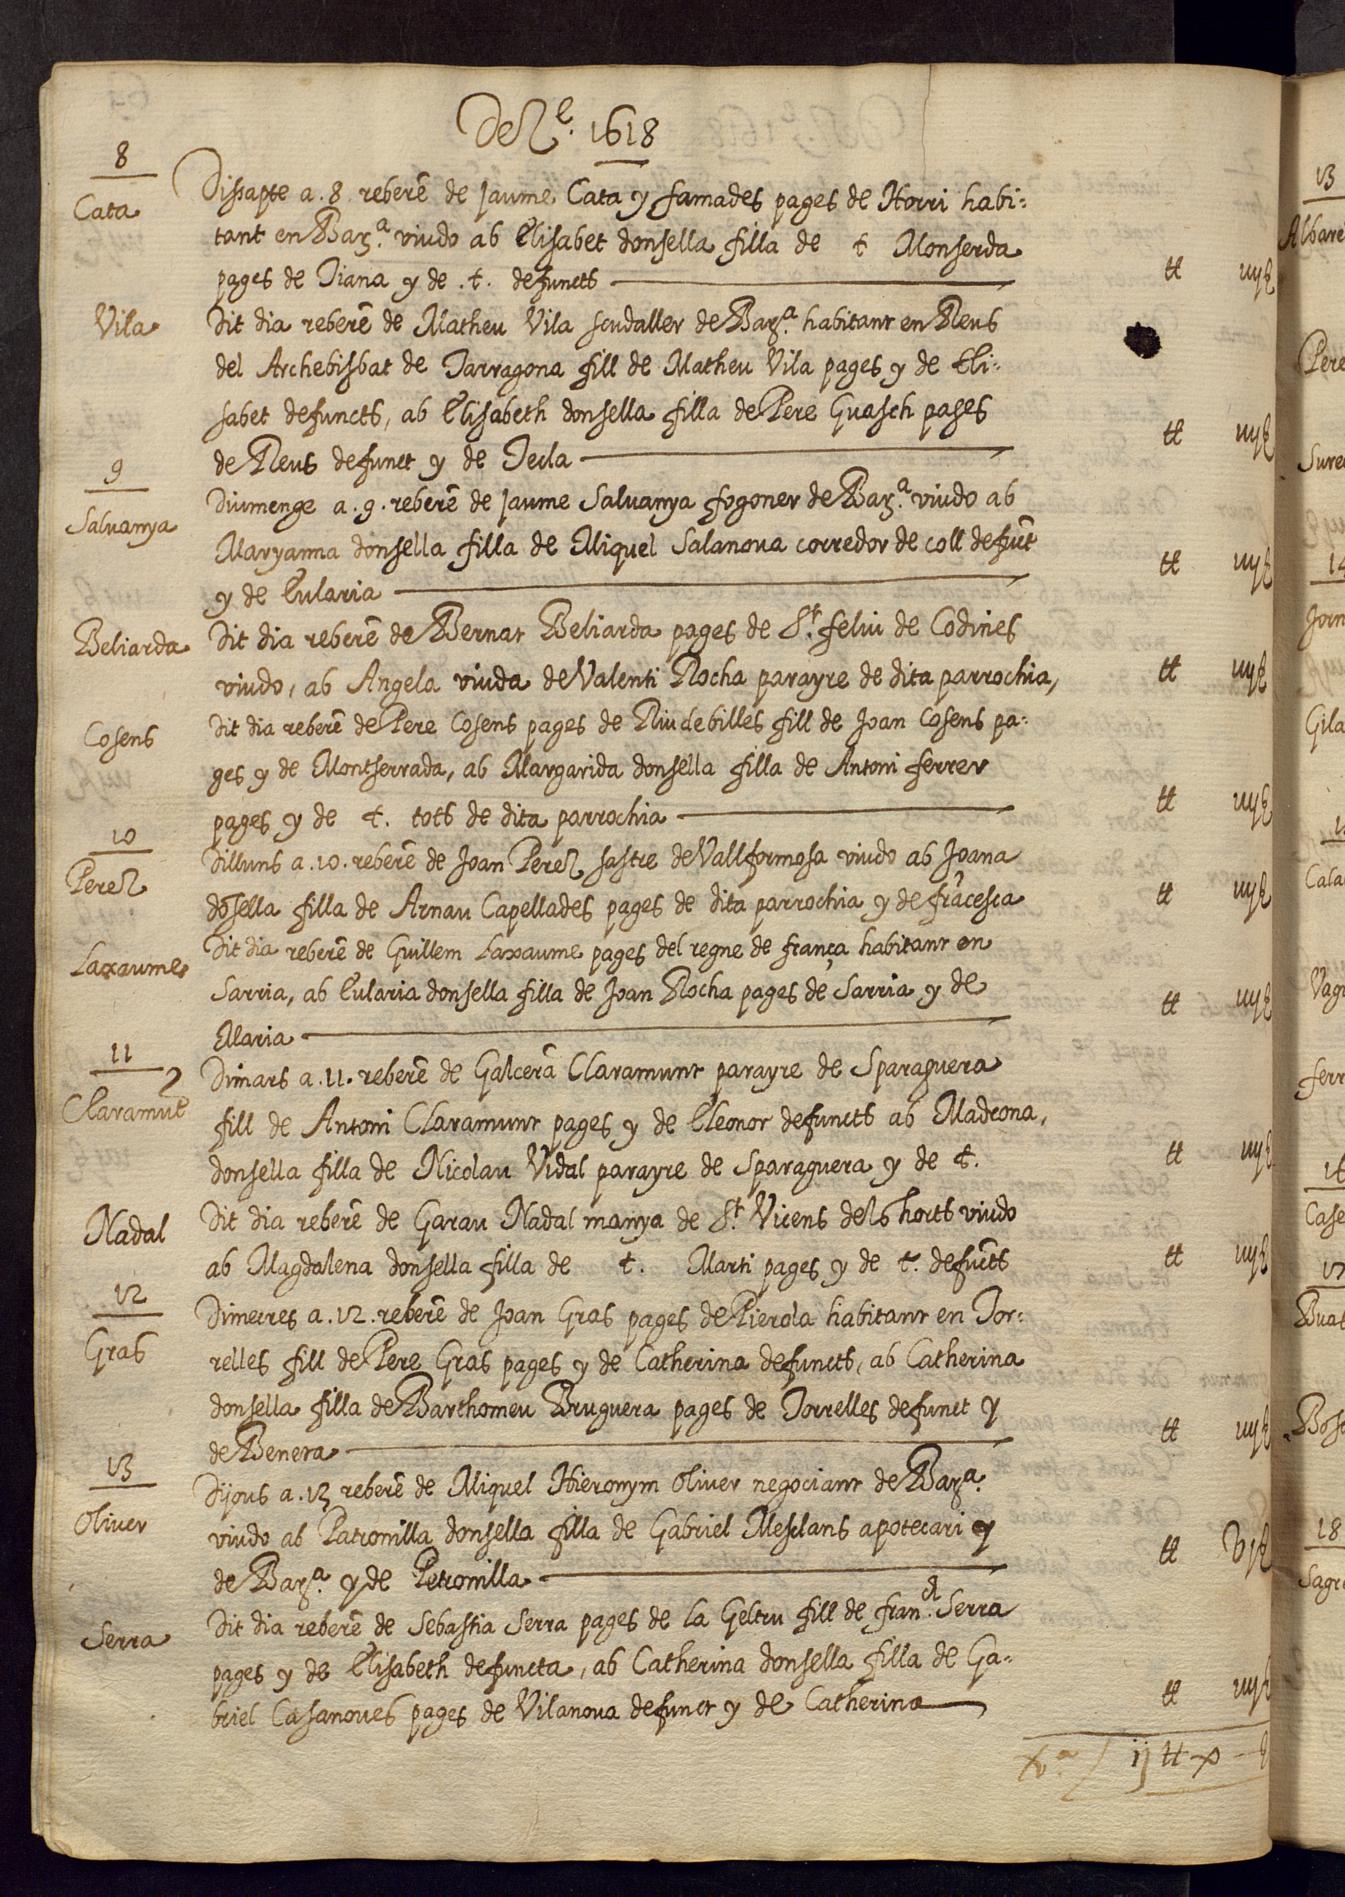 Dez.e 1618
8
Cata
Dissapte a .8. reberē de Jaume Cata y famades pages de Horri habi:
tant en Bar.a viudo ab Elisabet donsella filla de t Monserda
pages de Tiana y de .t. defuncts
tt iiij ẞ
Vila
Dit dia reberē de Matheu Vila scudaller de Bar.a habitant en Reus
del Archebisbat de Tarragona fill de Matheu Vila pages y de Eli:
sabet defuncts, ab Elisabeth donsella filla de Pere Guasch pages
tt iiij ẞ
de Reus defunct y de Tecla
9
Salvanya
Diumenge a .9. reberē de Jaume Salvanya fogoner de Bar.a viudo ab
Maryanna donsella filla de Miquel Salanova corredor de coll defūct
tt iiij ẞ
y de Eularia
Beliarda
Dit dia reberē de Bernat Beliarda pages de S.t feliu de Codines
viudo, ab Angela viuda de Valenti Rocha parayre de dita parrochia,
tt iiij ẞ
Cosens
Dit dia reberē de Pere Cosens pages de Riudebilles fill de Joan Cosens pa:
ges y de Montserrada, ab Margarida donsella filla de Antoni ferrer
pages y de t. tots de dita parrochia
tt iiij ẞ
10
Perez
Dilluns a .10. reberē de Joan Perez sastre de Vallformosa viudo ab Joana
dōsella filla de Arnau Capellades pages de dita parrochia y de frācesca
tt iiij ẞ
Laxaume
Dit dia reberē de Guillem Laxaume pages del regne de frança habitant en
Sarria, ab Eularia donsella filla de Joan Rocha pages de Sarria y de
tt iiij ẞ
Maria
11
Claramūt
Dimars a .11. reberē de Galcerā Claramunt parayre de Sparaguera
fill de Antoni Claramunt pages y de Eleonor defuncts ab Madrona,
donsella filla de Nicolau Vidal parayre de Sparaguera y de t.
tt iiij ẞ
Nadal
Dit dia reberē de Garau Nadal manya de S.t Vicens dels horts viudo
ab Magdalena donsella filla de t. Marti pages y de t. defūcts
tt iiij ẞ
12
Gras
Dimecres a .12. reberē de Joan Gras pages de Pierola habitant en Tor:
relles fill de Pere Gras pages y de Catherina defuncts, ab Catherina
donsella filla de Barthomeu Bruguera pages de Torrelles defunct y
tt iiij ẞ
de Benera
13
Oliver
Dijous a .13 reberē de Miquel Hieronym Oliver negociant de Bar.a
viudo ab Patronilla donsella filla de Gabriel Mesclans apotecari y
de Bar.a y de Petronilla
tt
Serra
Dit dia reberē de Sebastia Serra pages de la Geltru fill de fran.ch Serra
pages y de Elisabeth defuncta, ab Catherina donsella filla de Ga:
briel Casanoves pages de Vilanova defunct y de Catherina
tt iiij ẞ
ij tt x
13
Albare
Pere
Sure
14
Jorn
Gila
Cata
Vag
ferr
Case
Buat
Bosc
18
Sagr